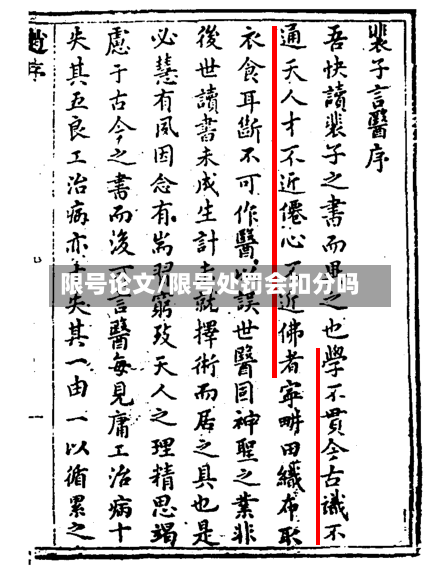 裴子言醫序
吾快讀裴子之書而畀之也學不貫今古識不
通天人才不近僊心不近佛者寧畊田織布取
衣食耳斷不可作醫以誤世醫固神聖之業非
後世讀書未成生計未就擇術而居之具也是
必慧有夙因念有耑習窮致天人之理精思竭
慮于古今之書而後可言醫每見庸工治病十
失其五良工治病亦十失其一由一以循累之
序
一
限号论文/限号处罚会扣分吗